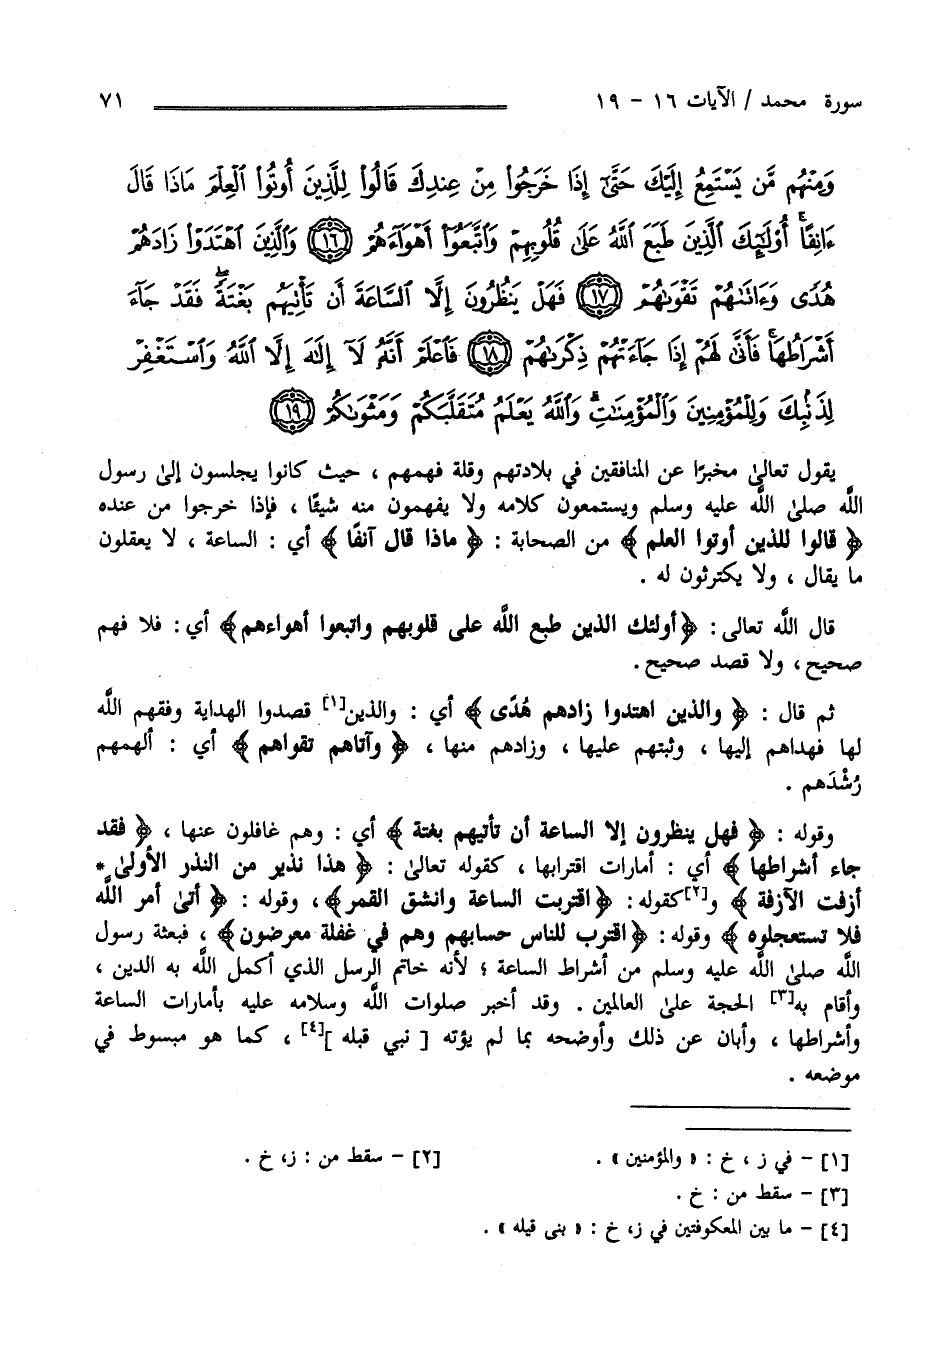 سورة محمد / الآيات ١٦ - ١٩ ٧١
وَمِنْهُم مَّن يَسْتَمِعُ إِلَيْكَ حَتَّىٰٓ إِذَا خَرَجُوا۟ مِنْ عِندِكَ قَالُوا۟ لِلَّذِينَ أُوتُوا۟ ٱلْعِلْمَ مَاذَا قَالَ
ءَانِفًا ۚ أُو۟لَـٰٓئِكَ ٱلَّذِينَ طَبَعَ ٱللَّهُ عَلَىٰ قُلُوبِهِمْ وَٱتَّبَعُوٓا۟ أَهْوَآءَهُمْ ﴿١٦﴾ وَٱلَّذِينَ ٱهْتَدَوْا۟ زَادَهُمْ
هُدًى وَءَاتَىٰهُمْ تَقْوَىٰهُمْ ﴿١٧﴾ فَهَلْ يَنظُرُونَ إِلَّا ٱلسَّاعَةَ أَن تَأْتِيَهُم بَغْتَةً ۖ فَقَدْ جَآءَ
أَشْرَاطُهَا ۚ فَأَنَّىٰ لَهُمْ إِذَا جَآءَتْهُمْ ذِكْرَىٰهُمْ ﴿١٨﴾ فَٱعْلَمْ أَنَّهُۥ لَآ إِلَـٰهَ إِلَّا ٱللَّهُ وَٱسْتَغْفِرْ
لِذَنۢبِكَ وَلِلْمُؤْمِنِينَ وَٱلْمُؤْمِنَـٰتِ ۗ وَٱللَّهُ يَعْلَمُ مُتَقَلَّبَكُمْ وَمَثْوَىٰكُمْ ﴿١٩﴾
يقول تعالىٰ مخبرًا عن المنافقين في بلادتهم وقلة فهمهم ، حيث كانوا يجلسون إلىٰ رسول
اللَّه صلىٰ اللَّه عليه وسلم ويستمعون كلامه ولا يفهمون منه شيئًا ، فإذا خرجوا من عنده
﴿ قالوا للذين أوتوا العلم ﴾ من الصحابة : ﴿ ماذا قال آنفًا ﴾ أي : الساعة ، لا يعقلون
ما يقال ، ولا يكترثون له .
قال اللَّه تعالى : ﴿أولئك الذين طبع اللَّه على قلوبهم واتبعوا أهواءهم﴾ أي : فلا فهم
صحيح ، ولا قصد صحيح .
ثم قال : ﴿ والذين اهتدوا زادهم هُدًى ﴾ أي : والذين[١] قصدوا الهداية وفقهم اللَّه
لها فهداهم إليها ، وثبتهم عليها ، وزادهم منها ، ﴿ وآتاهم تقواهم ﴾ أي : ألهمهم
رُشْدَهم .
وقوله : ﴿ فهل ينظرون إلا الساعة أن تأتيهم بغتة ﴾ أي : وهم غافلون عنها ، ﴿ فقد
جاء أشراطها ﴾ أي : أمارات اقترابها ، كقوله تعالىٰ : ﴿ هذا نذير من النذر الأولىٰ *
أزفت الآزفة ﴾ و[٢]كقوله : ﴿اقتربت الساعة وانشق القمر﴾ ، وقوله : ﴿ أتىٰ أمر اللَّه
فلا تستعجلوه ﴾ وقوله : ﴿اقترب للناس حسابهم وهم في غفلة معرضون﴾ ، فبعثة رسول
اللَّه صلىٰ اللَّه عليه وسلم من أشراط الساعة ؛ لأنه خاتم الرسل الذي أكمل اللَّه به الدين ،
وأقام به[٣] الحجة علىٰ العالمين . وقد أخبر صلوات اللَّه وسلامه عليه بأمارات الساعة
وأشراطها ، وأبان عن ذلك وأوضحه بما لم يؤته [ نبي قبله ][٤] ، كما هو مبسوط في
موضعه .
[١] - في ز ، خ : « والمؤمنين » . [٢] - سقط من : ز، خ .
[٣] - سقط من : خ .
[٤] - ما بين المعكوفتين في ز، خ : « بنى قيله » .